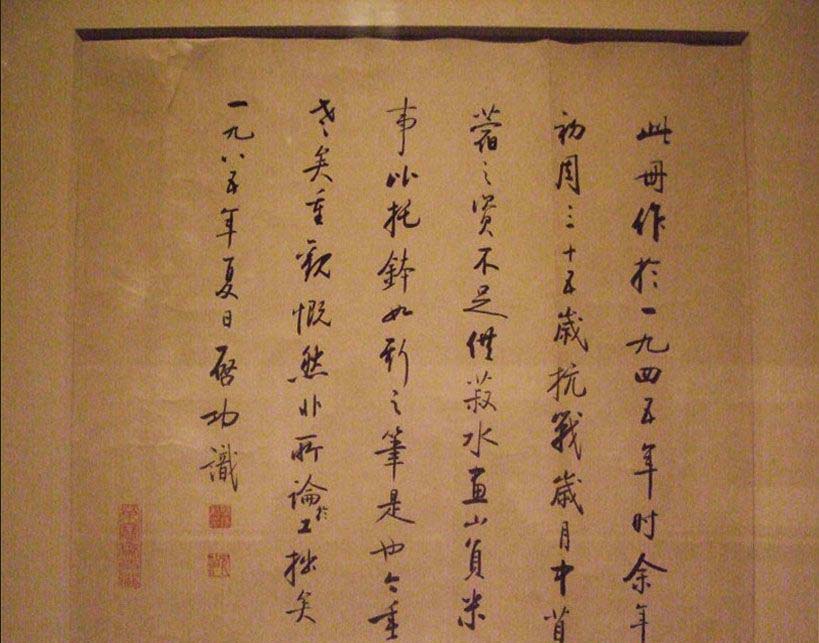 此冊作於一九四五年时余年
初周三十五歲抗戰歲月中苜
蓿之資不足供菽水畫山負米
事以托鉢如斯之筆是也今垂
老矣重觀慨然非所論於工拙矣
一九八五年夏日啓功識